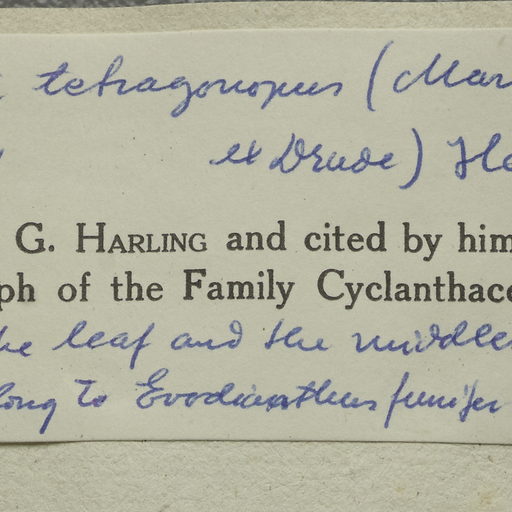 tetragonopus (Mar
ex Drude) He
G. HARLING and cited by him
ph of the Family Cyclanthace
he leaf and the middle
long to Evodianthus funifer